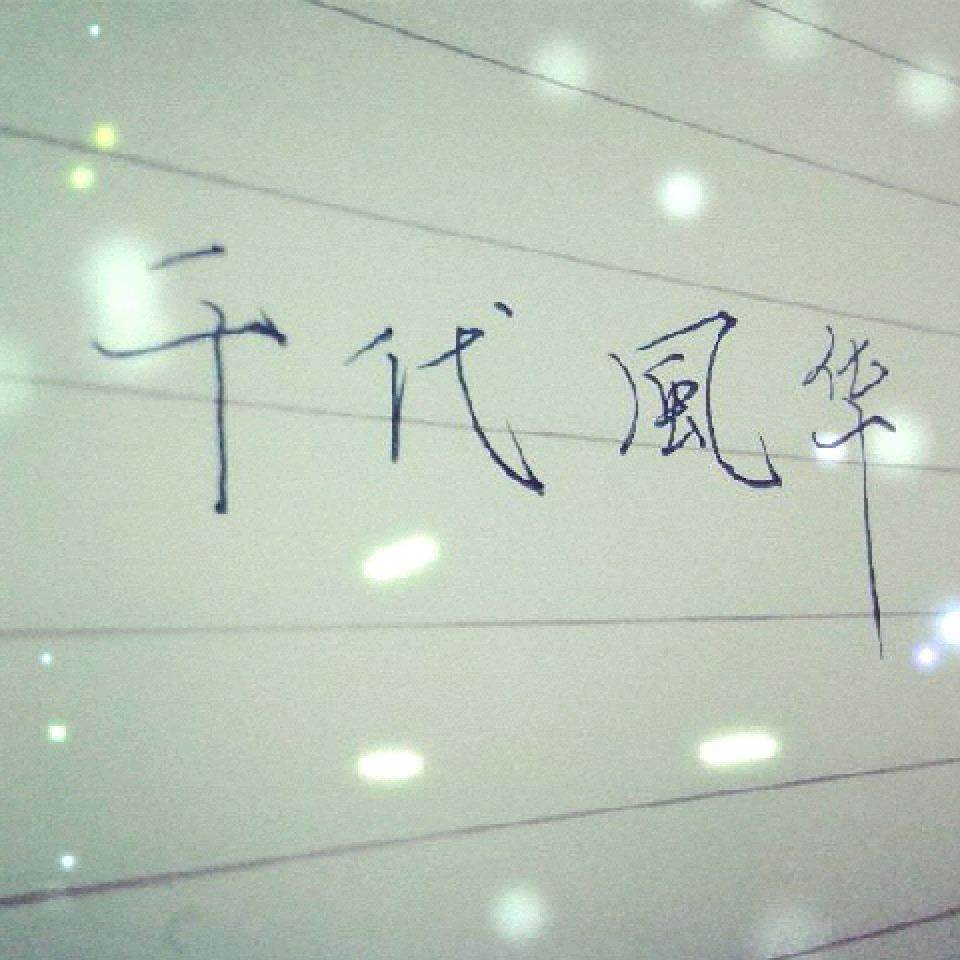 千代風华